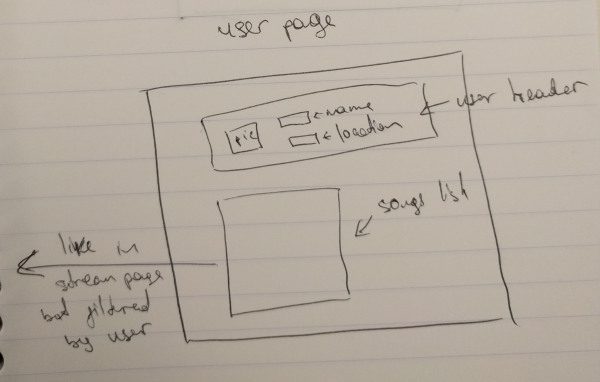 user page
pic
name
location
user header
songs list
like in
stream page
but fildered
by user